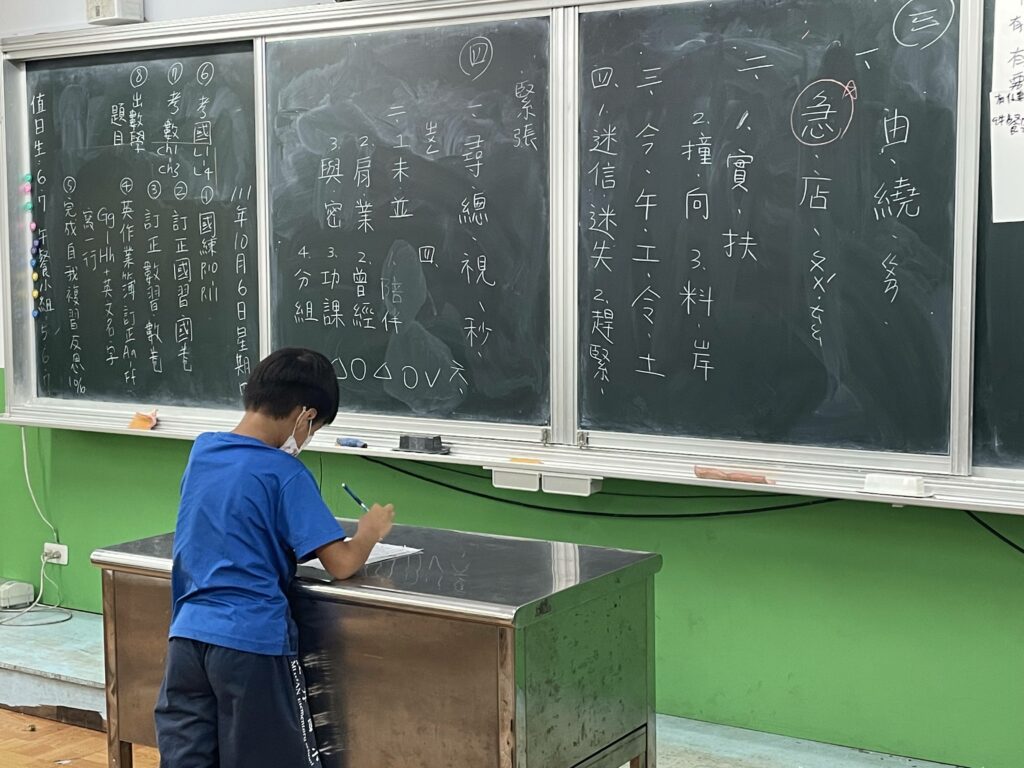 三
一、由、繞、ㄠˊ
急、店、
二、1.實、扶
2.撞、向 3.料、岸
三、今、午、工、令、土
四、1.迷信、迷失 2.趕緊、
緊張
四
一、尋、總、視、秒、
二、工、未、並 四、
2.肩、業 2.曾經
3.與、密 3.功課
4.分組
陪伴
六、
111年10月6日星期四
①國練P10、P11
②訂正國習國卷
③訂正數習數卷
④英作業簿訂正
Gg Hh+英文名字
寫一行
⑤完成自我複習反思10%
⑥考國L1 L4
⑦考數ch1 ch3
⑧出數學題目
值日生:6、7 午餐小組:5、6、7